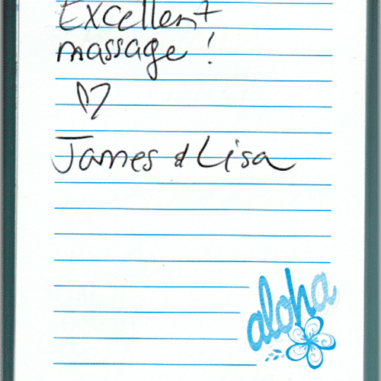 Excellent
massage!
♡
James & Lisa
aloha